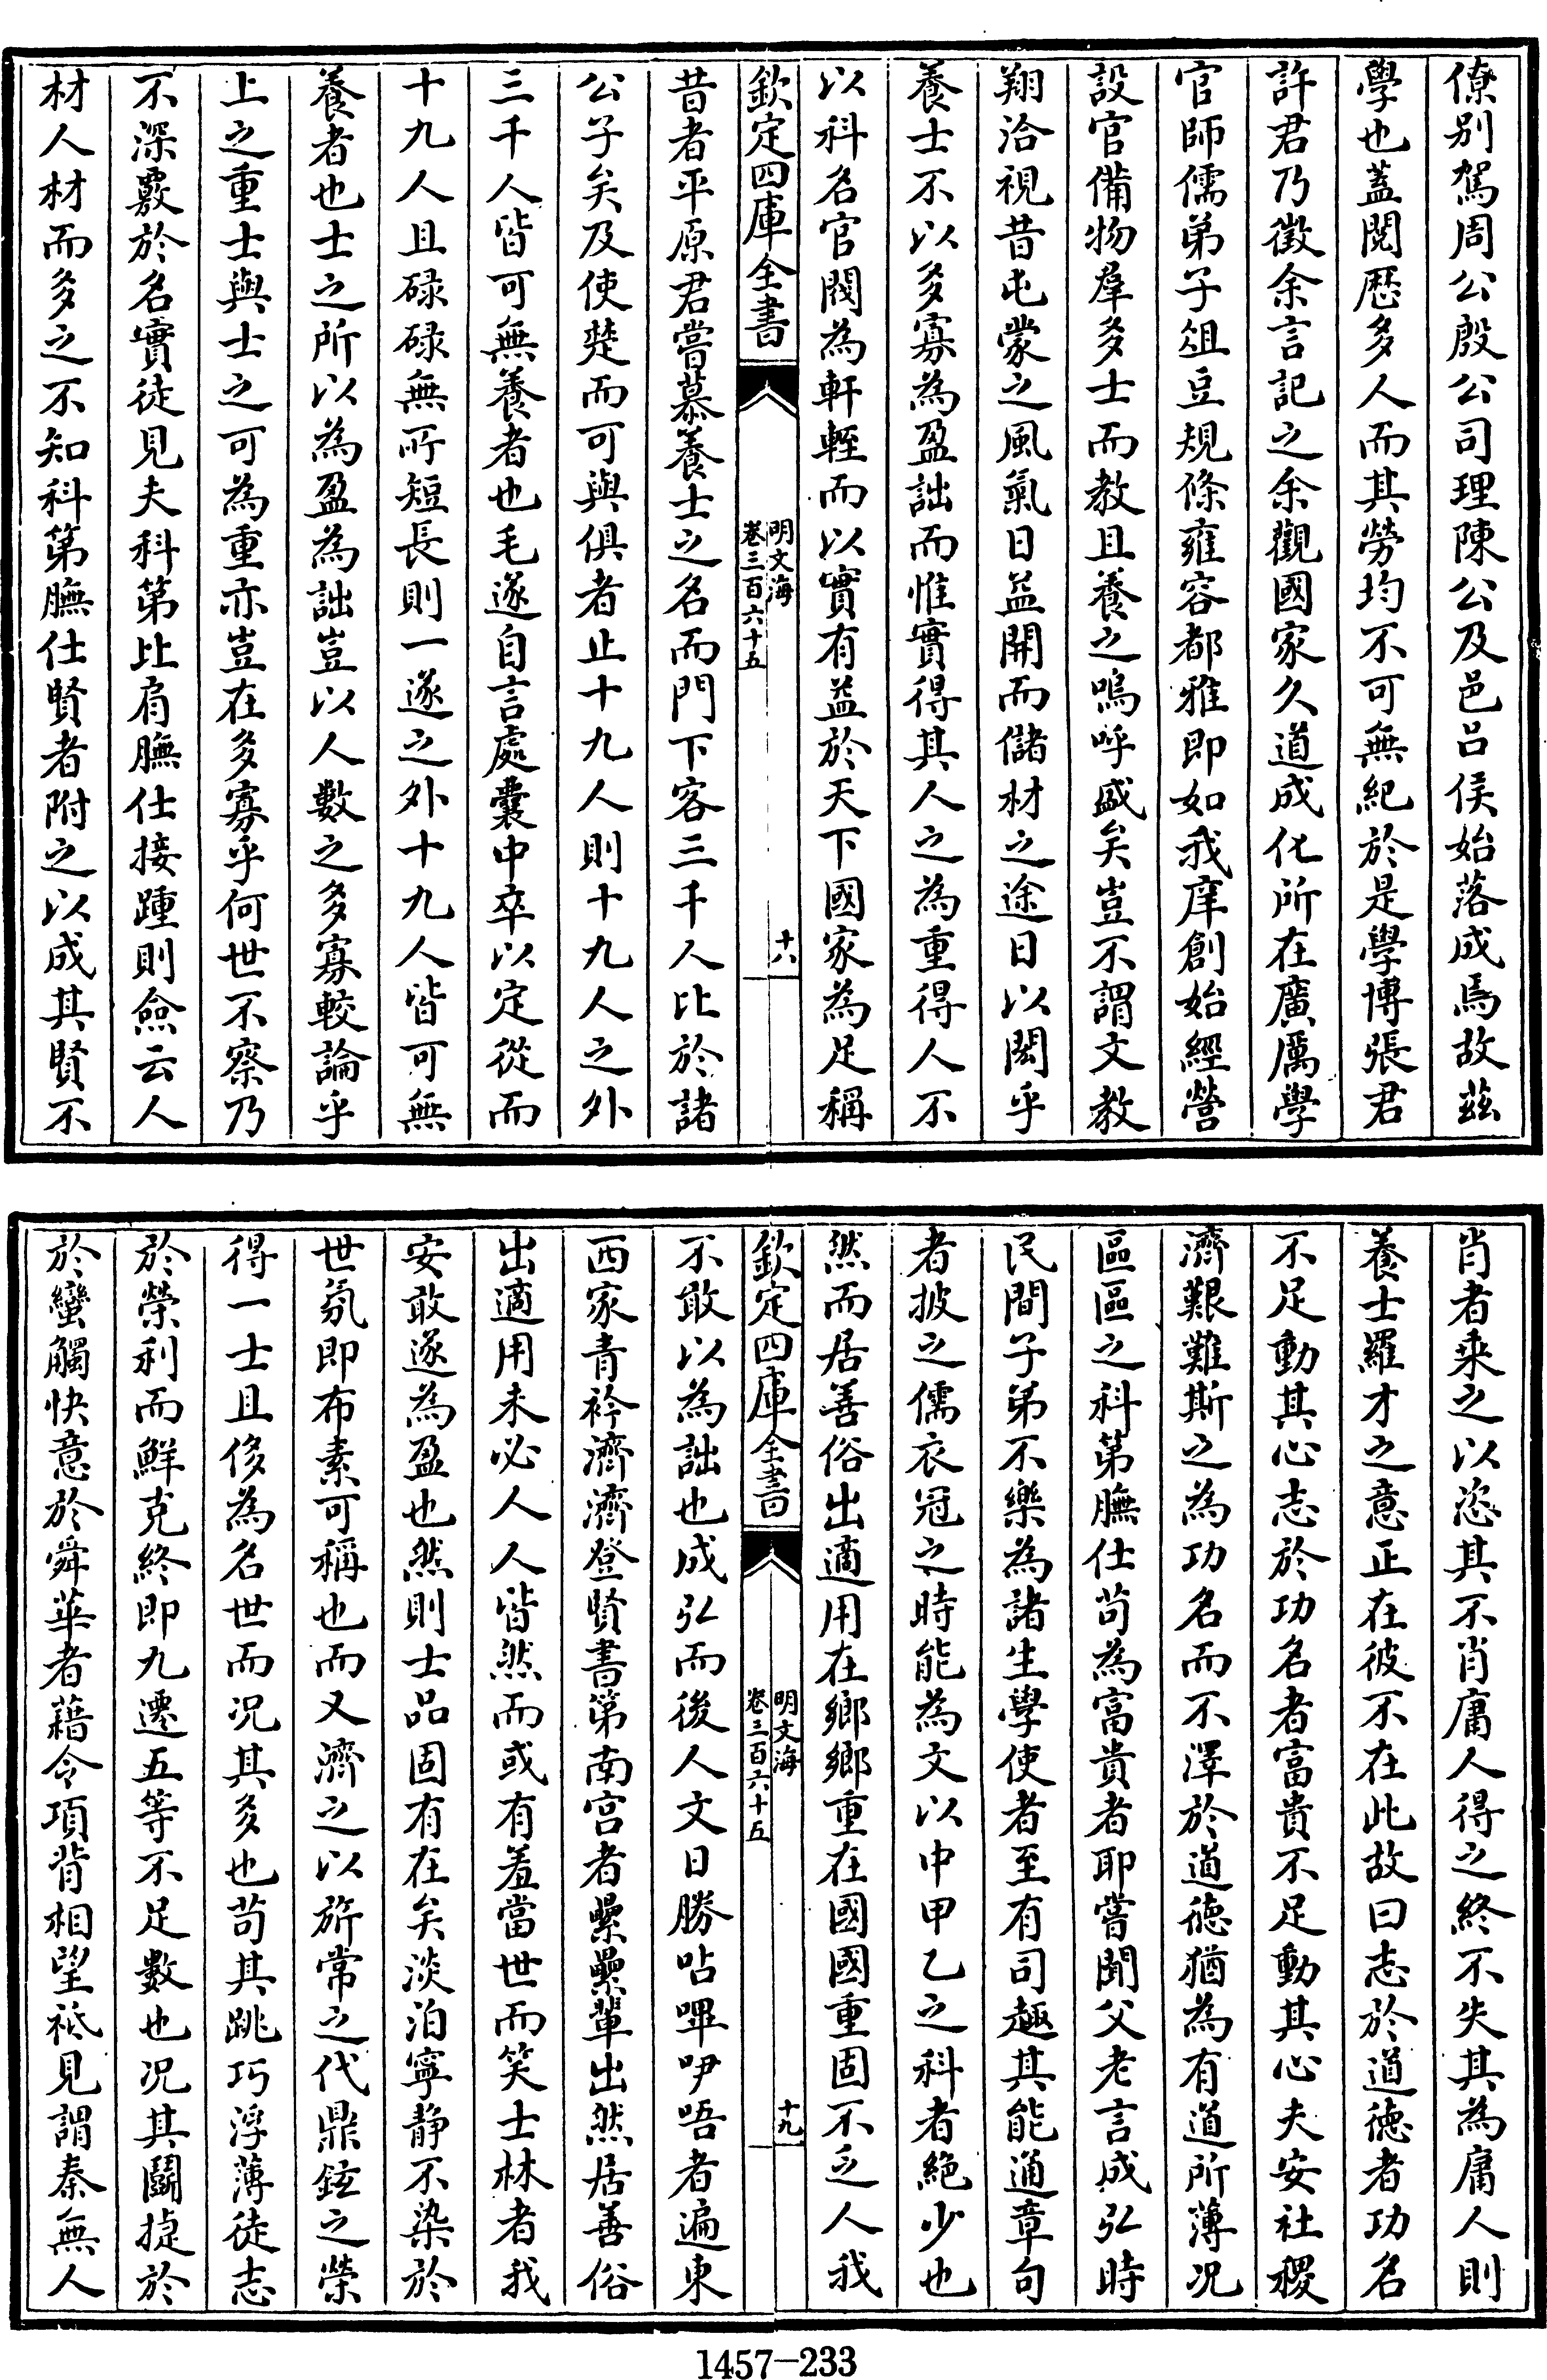 僚別駕周公殷公司理陳公及邑呂侯始落成焉故茲
學也蓋閱歷多人而其勞均不可無紀於是學博張君
許君乃徵余言記之余觀國家久道成化所在廣厲學
官師儒弟子俎豆規條雍容都雅即如我庠創始經營
設官備物羣多士而教且養之嗚呼盛矣豈不謂文教
翔洽視昔屯蒙之風氣日益開而儲材之途日以閎乎
養士不以多寡為盈詘而惟實得其人之為重得人不
以科名官閥為軒輊而以實有益於天下國家為足稱
欽定四庫全書
明文海
卷三百六十五
十八
昔者平原君嘗慕養士之名而門下客三千人比於諸
公子矣及使楚而可與俱者止十九人則十九人之外
三千人皆可無養者也毛遂自言處囊中卒以定從而
十九人且碌碌無所短長則一遂之外十九人皆可無
養者也士之所以為盈為詘豈以人數之多寡較論乎
上之重士與士之可為重亦豈在多寡乎何世不察乃
不深覈於名實徒見夫科第比肩膴仕接踵則僉云人
材人材而多之不知科第膴仕賢者附之以成其賢不
肖者乘之以恣其不肖庸人得之終不失其為庸人則
養士羅才之意正在彼不在此故曰志於道德者功名
不足動其心志於功名者富貴不足動其心夫安社稷
濟艱難斯之為功名而不澤於道德猶為有道所薄況
區區之科第膴仕苟為富貴者耶嘗聞父老言成弘時
民間子弟不樂為諸生學使者至有司趣其能通章句
者披之儒衣冠之時能為文以中甲乙之科者絕少也
然而居善俗出適用在鄉鄉重在國國重固不乏人我
欽定四庫全書
明文海
卷三百六十五
十九
不敢以為詘也成弘而後人文日勝呫嗶吚唔者遍東
西家青衿濟濟登賢書第南宮者纍纍輩出然居善俗
出適用未必人人皆然而或有羞當世而笑士林者我
安敢遂為盈也然則士品固有在矣淡泊寧靜不染於
世氛即布素可稱也而又濟之以旂常之代鼎鉉之榮
得一士且侈為名世而況其多也苟其跳巧浮薄徒志
於榮利而鮮克終即九遷五等不足數也況其鬭捷於
於蠻觸快意於舜華者藉令項背相望祗見謂秦無人
1457-233